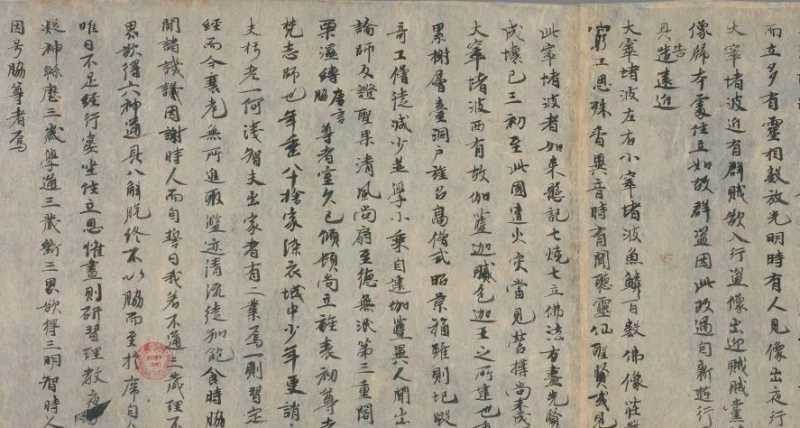 而立多有靈相數放光明時有人見像出夜行
大窣堵波近有群賊欲入行盜像出迎賊賊黨
像歸本處住立如故群盜因此改過自新遊行
具造告遠近
大窣堵波左右小窣堵波魚鱗百數佛像莊嚴
窮工思殊香異音時有聞聽靈仙聖賢或見
此窣堵波者如來懸記七燒七立佛法方盡先賢
成壞已三初至此國遭火灾當見營搆尚未成
大窣堵波西有故伽藍迦膩色迦王之所建也重
累榭層臺洞戶旌召高僧式昭景福雖則圮毀
奇工僧徒減少並學小乘自建伽藍異人間出
論師及證聖果清風尚扇至德無泯第三重閣
栗濕縛唐言脇尊者室久已傾頓尚立旌表初尊者
梵志師也年垂八十捨家染衣城中少年更誚
夫朽老一何淺智夫出家者有二業焉一則習定
經而今衰老無所進取濫迹清流徒知飽食時脇
聞諸譏議因謝時人而自誓曰我若不通三藏理不
思欲得六神通具八解脫終不以脇而至於席自
唯日不足經行宴坐住立思惟晝則研習理教夜
凝神緜歷三歲學通三歲斷三界欲得三明智時人
因号脇尊者焉